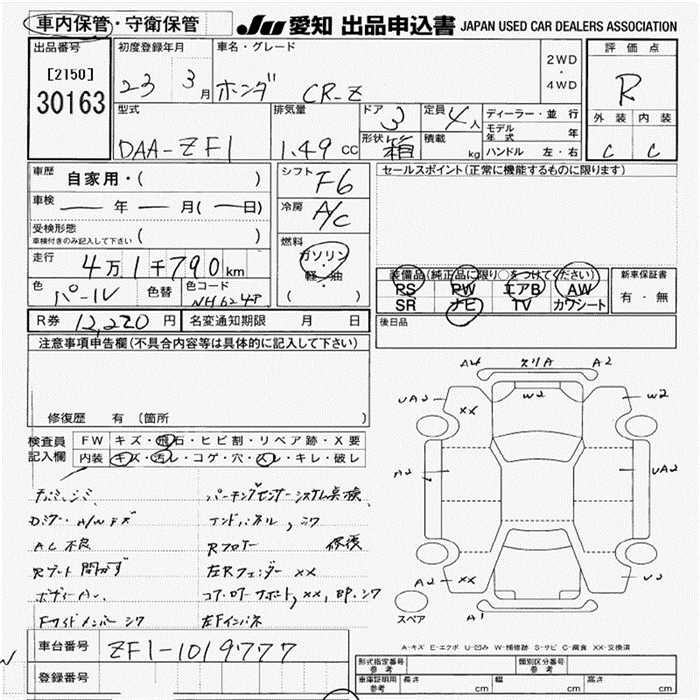 車内保管・守衛保管
JU 愛知 出品申込書 JAPAN USED CAR DEALERS ASSOCIATION
出品番号 初度登録年月 車名・グレード 評価点
[2150] 2WD
・
30163 23 3月 ホンダ CR-Z 4WD R
型式 排気量 ドア 3 定員 4人 ディーラー・並行 外装 内装
モデル年式 年
DAA-ZF1 1.49 cc 形状 箱 積載 kg ハンドル 左・右 C C
車歴 自家用・( ) シフト F6 セールスポイント(正常に機能するものに限ります)
車検 ― 年 ― 月( ― 日) 冷房 A/C
受検形態
車検付きのみ記入して下さい ( )
走行 4万1千790km 燃料 ガソリン・軽・油 ( )
装備品(純正品に限り○をつけてください) 新車保証書
PS PW エアB AW 有・無
SR ナビ TV カワシート
色 パール 色替 色コード NH624P
R券 12,220円 名変通知期限 月 日 後日品
注意事項申告欄(不具合内容等は具体的に記入して下さい)
修復歴 有(箇所 )
検査員 FW キズ・飛石・ヒビ割・リペア跡・X要
記入欄 内装 キズ・汚レ・コゲ・穴・スレ・キレ・破レ
A4 スリA A2
UA2 XX W2 W2
A2 UA2
A2 XX U2
A1
スペア
パーキングセンサーシステム点検
Dミラー A/W キズ エンドパネル,シワ
AC不良 Rフロアー 修復
Rゲート開かず 左Rフェンダー XX
コアロアサポート,XX,BP.シワ
Fサイドメンバーシワ 左Fインパネ
A-キズ E-エクボ U-凹み W-補修跡 S-サビ C-腐食 XX-交換済
車台番号 ZF1-1019777
登録番号
形式指定番号 参考 類別区分番号 参考
車庫証明用 参考 長さ cm 幅 cm 高さ cm